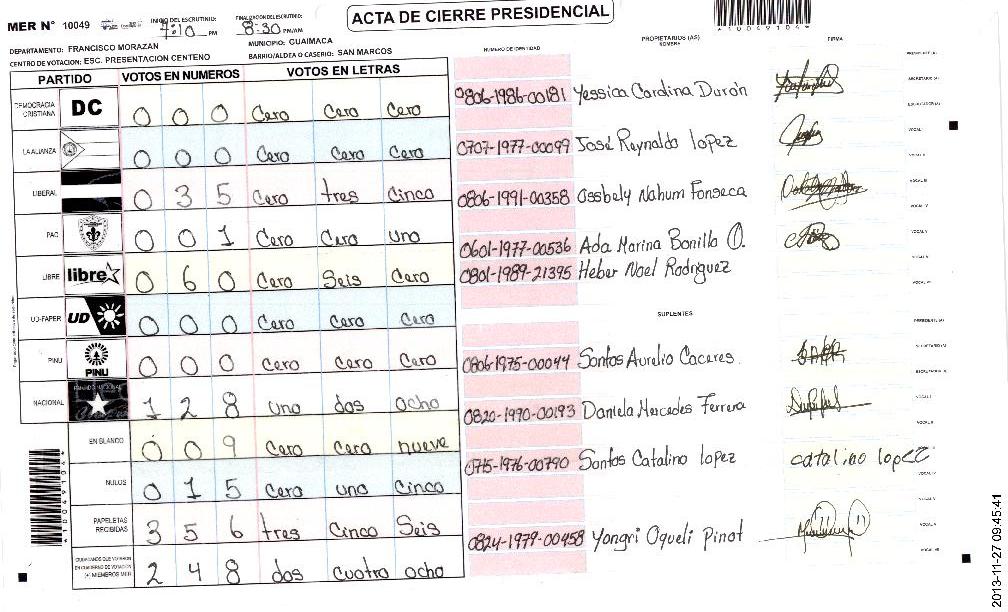 ACTA DE CIERRE PRESIDENCIAL
MER N° 10049
INICIO DEL ESCRUTINIO: 7:10 PM
FINALIZACION DEL ESCRUTINIO: 8:30 PM/AM
DEPARTAMENTO: FRANCISCO MORAZAN
MUNICIPIO: GUAIMACA
CENTRO DE VOTACION: ESC. PRESENTACION CENTENO
BARRIO/ALDEA O CASERIO: SAN MARCOS
PARTIDO VOTOS EN NUMEROS VOTOS EN LETRAS
DEMOCRACIA CRISTIANA DC 0 0 0 Cero Cero Cero
LA ALIANZA 0 0 0 Cero Cero Cero
LIBERAL 0 3 5 Cero tres Cinco
PAC 0 0 1 Cero Cero uno
LIBRE libre 0 6 0 Cero Seis Cero
UD-FAPER UD 0 0 0 Cero Cero Cero
PINU PINU 0 0 0 Cero Cero Cero
NACIONAL 1 2 8 uno dos ocho
EN BLANCO 0 0 9 Cero Cero nueve
NULOS 0 1 5 Cero uno Cinco
PAPELETAS RECIBIDAS 3 5 6 tres Cinco Seis
CIUDADANOS QUE VOTARON EN CUADERNO DE VOTACION (+) MIEMBROS MER 2 4 8 dos cuatro ocho
NUMERO DE IDENTIDAD PROPIETARIOS (AS) NOMBRE FIRMA
0806-1986-00181 Yessica Cardina Duron
0707-1977-00099 José Reynaldo lopez
0806-1991-00358 Ossbely Nahum Fonseca
0601-1977-00536 Ada Marina Bonilla O.
0801-1989-21395 Heber Noel Rodriguez
SUPLENTES
0806-1975-00044 Santos Aurelio Caceres.
0820-1990-00193 Daniela Mercedes Ferrera
0715-1976-00790 Santos Catalino lopez catalino lopez
0824-1979-00458 Yongri Oqueli Pinot
PRESIDENTE (A)
SECRETARIO (A)
ESCRUTADOR (A)
VOCAL I
VOCAL II
VOCAL III
VOCAL IV
VOCAL V
VOCAL VI
VOCAL VII
PRESIDENTE (A)
SECRETARIO (A)
ESCRUTADOR (A)
VOCAL I
VOCAL II
VOCAL III
VOCAL IV
VOCAL V
VOCAL VI
VOCAL VII
*1004910 4*
2013-11-27 09:45:41